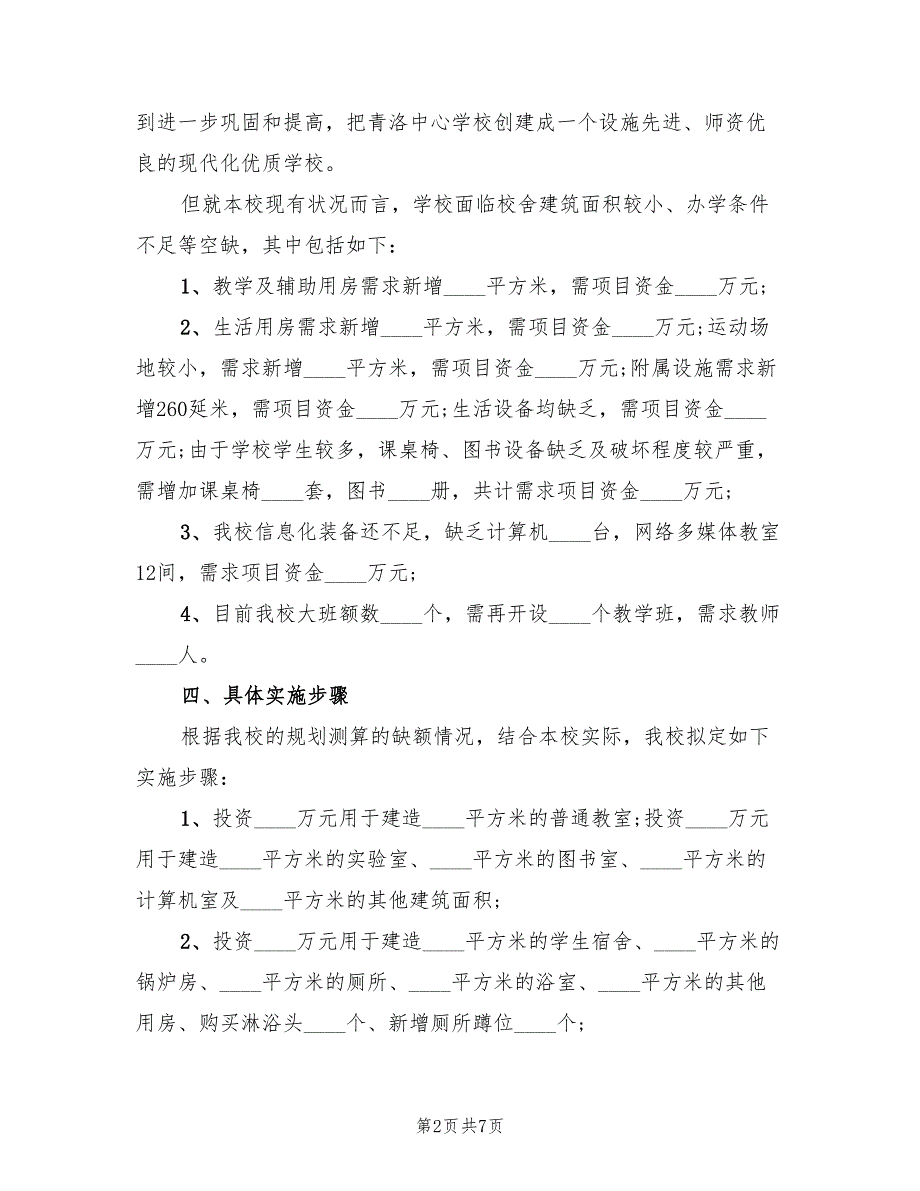 到进一步巩固和提高，把青洛中心学校创建成一个设施先进、师资优
良的现代化优质学校。
但就本校现有状况而言，学校面临校舍建筑面积较小、办学条件
不足等空缺，其中包括如下：
1、教学及辅助用房需求新增____平方米，需项目资金____万元;
2、生活用房需求新增____平方米，需项目资金____万元;运动场
地较小，需求新增____平方米，需项目资金____万元;附属设施需求新
增260延米，需项目资金____万元;生活设备均缺乏，需项目资金____
万元;由于学校学生较多，课桌椅、图书设备缺乏及破坏程度较严重，
需增加课桌椅____套，图书____册，共计需求项目资金____万元;
3、我校信息化装备还不足，缺乏计算机____台，网络多媒体教室
12间，需求项目资金____万元;
4、目前我校大班额数____个，需再开设____个教学班，需求教师
____人。
四、具体实施步骤
根据我校的规划测算的缺额情况，结合本校实际，我校拟定如下
实施步骤：
1、投资____万元用于建造____平方米的普通教室;投资____万元
用于建造____平方米的实验室、____平方米的图书室、____平方米的
计算机室及____平方米的其他建筑面积;
2、投资____万元用于建造____平方米的学生宿舍、____平方米的
锅炉房、____平方米的厕所、____平方米的浴室、____平方米的其他
用房、购买淋浴头____个、新增厕所蹲位____个;
第2页共7页